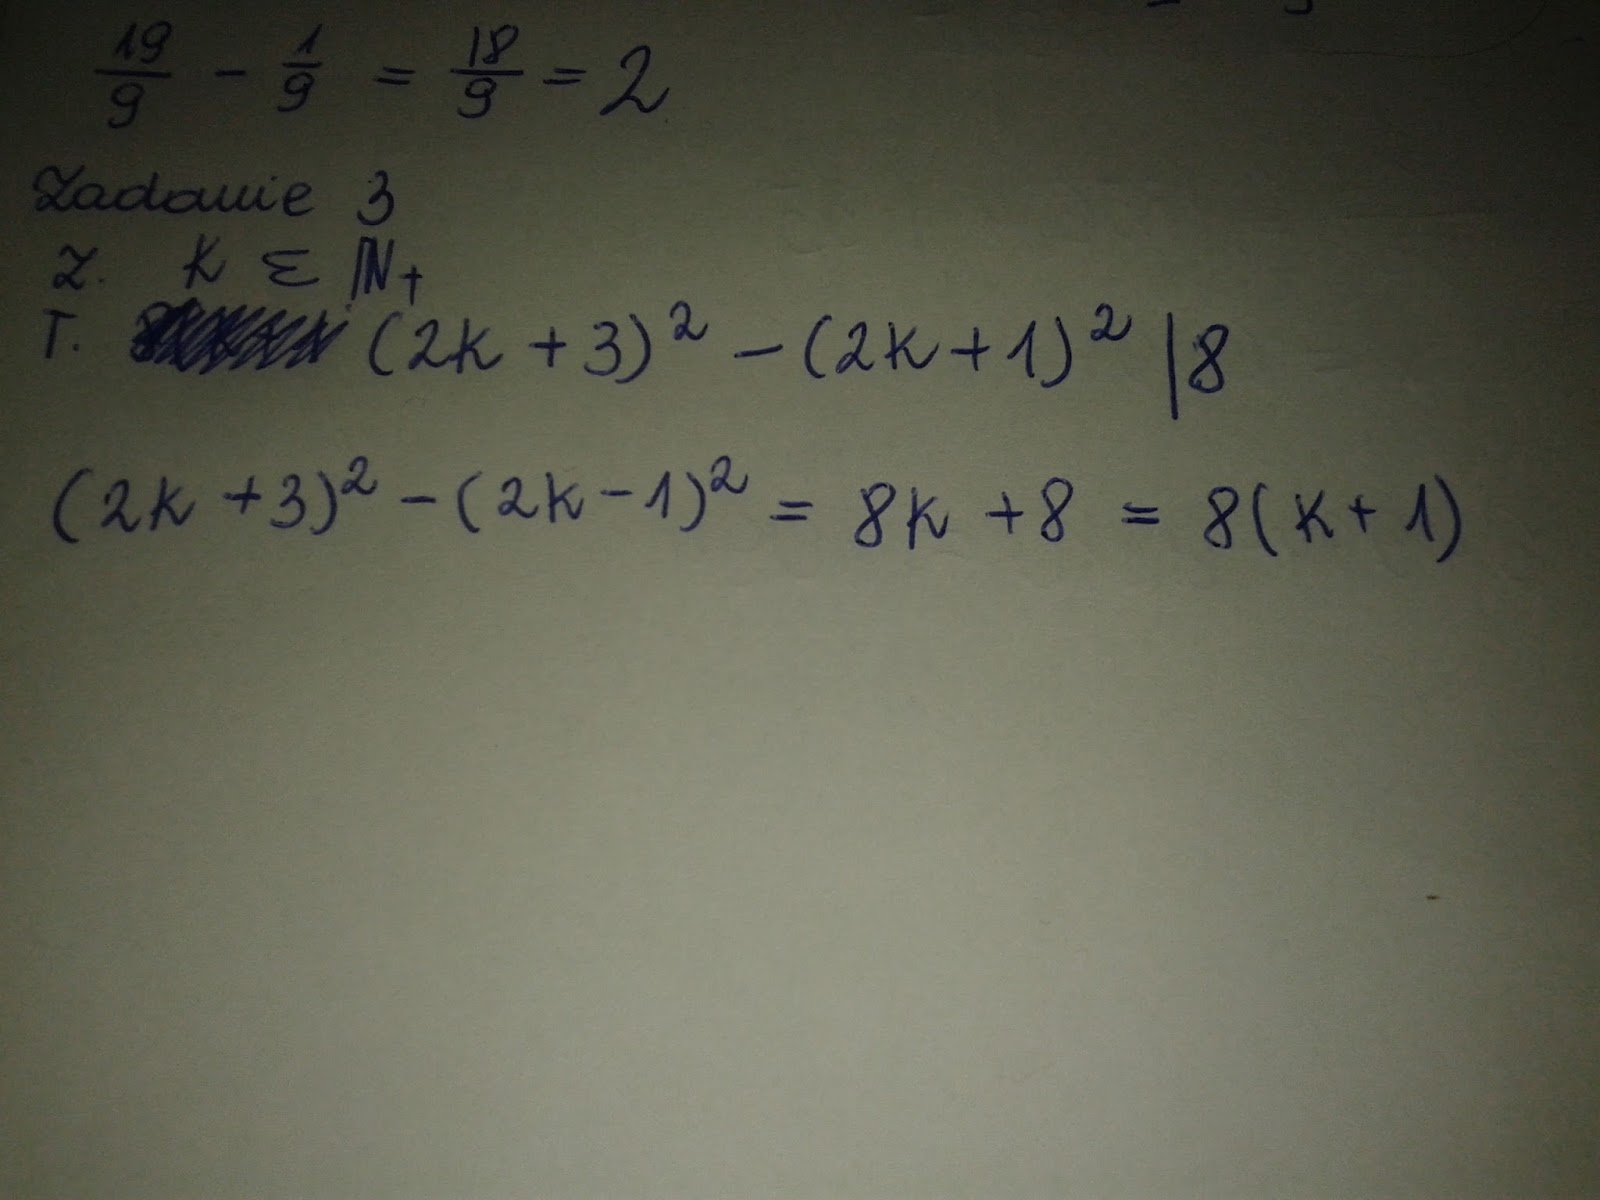 19/9 - 1/9 = 18/9 = 2
Zadanie 3
Z. K ∈ ℕ+
T. (2k + 3)² - (2k + 1)² | 8
(2k + 3)² - (2k - 1)² = 8k + 8 = 8(k + 1)